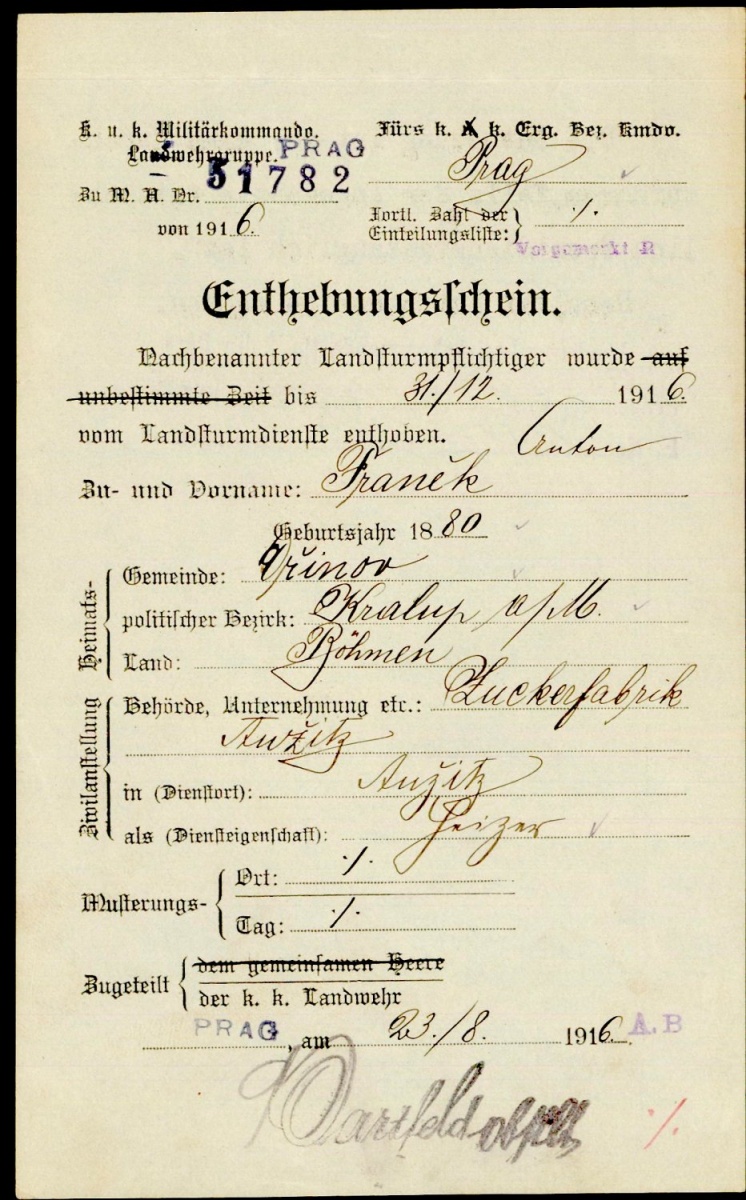 K. u. k. Militärkommando.
Landwehrgruppe. PRAG
Zu M. A. Nr. 51782
von 1916.
Fürs k. k. Erg. Bez. Kmdo.
Prag
Fortl. Zahl der
Einteilungsliste: ·/.
Vorgemerkt R
Enthebungsschein.
Nachbenannter Landsturmpflichtiger wurde auf
unbestimmte Zeit bis 31./12. 1916.
vom Landsturmdienste enthoben.
Anton
Zu- und Vorname: Franěk
Geburtsjahr 1880
Heimats-
Gemeinde: Dřinov
politischer Bezirk: Kralup a/M.
Land: Böhmen
Zivilanstellung
Behörde, Unternehmung etc.: Zuckerfabrik
Aužitz
in (Dienstort): Aužitz
als (Diensteigenschaft): Heizer
Musterungs-
Ort: ·/.
Tag: ·/.
Zugeteilt
dem gemeinsamen Heere
der k. k. Landwehr
PRAG, am 23./8. 1916. A.B
·/.